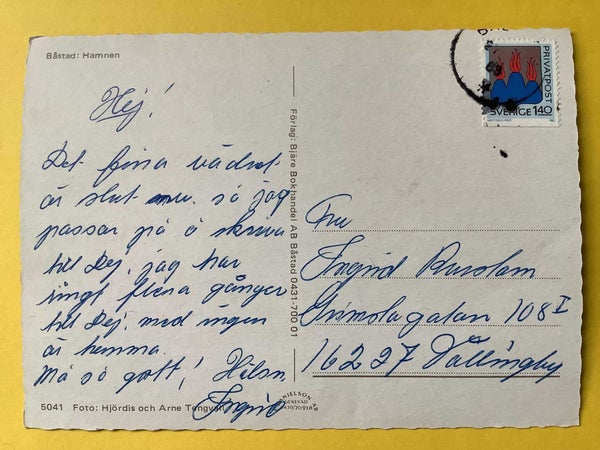 Båstad: Hamnen
Hej!
Det fina vädret
är slut nu. så jag
passar på å skriva
till Dej. jag har
ringt flera gånger
till Dej. med ingen
är hemma.
Må så gott! Hälsn
Ingrid
5041 Foto: Hjördis och Arne Tengvall
Förlag: Bjäre Bokhandel AB Båstad 0431-700 01
PRIVATPOST
SVERIGE 140
Fru
Ingrid
108 I
16227 Vällingby